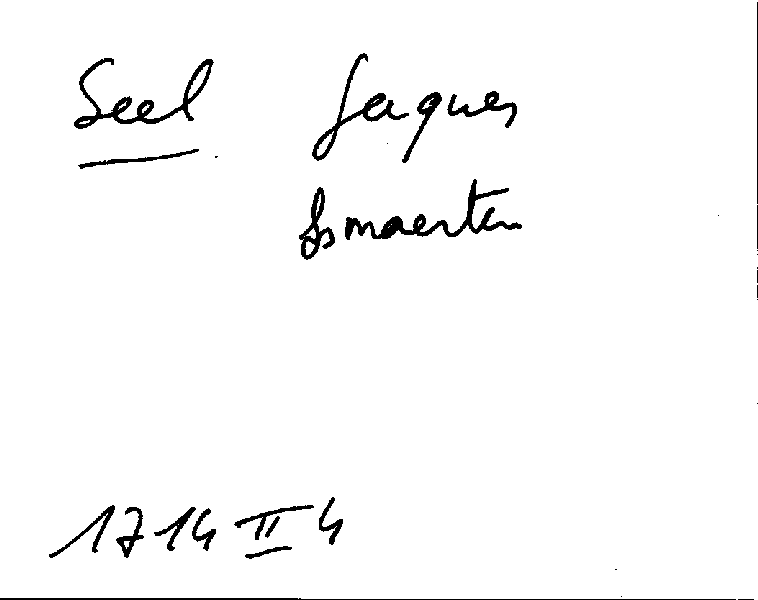 Seel Jaques
Jsmaerten
1714 II 4